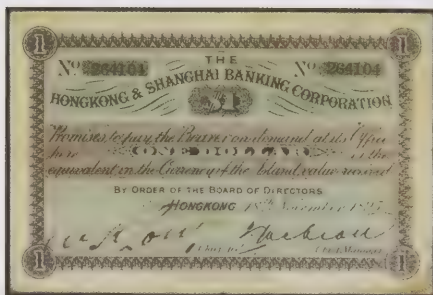 1 1
THE
No. 264104 No. 264104
HONGKONG & SHANGHAI BANKING CORPORATION
$1
Promises to pay the Bearer on demand at its Office
here ONE DOLLAR or the
equivalent in the Currency of the Island value received
BY ORDER OF THE BOARD OF DIRECTORS
HONGKONG 18th November
1 1